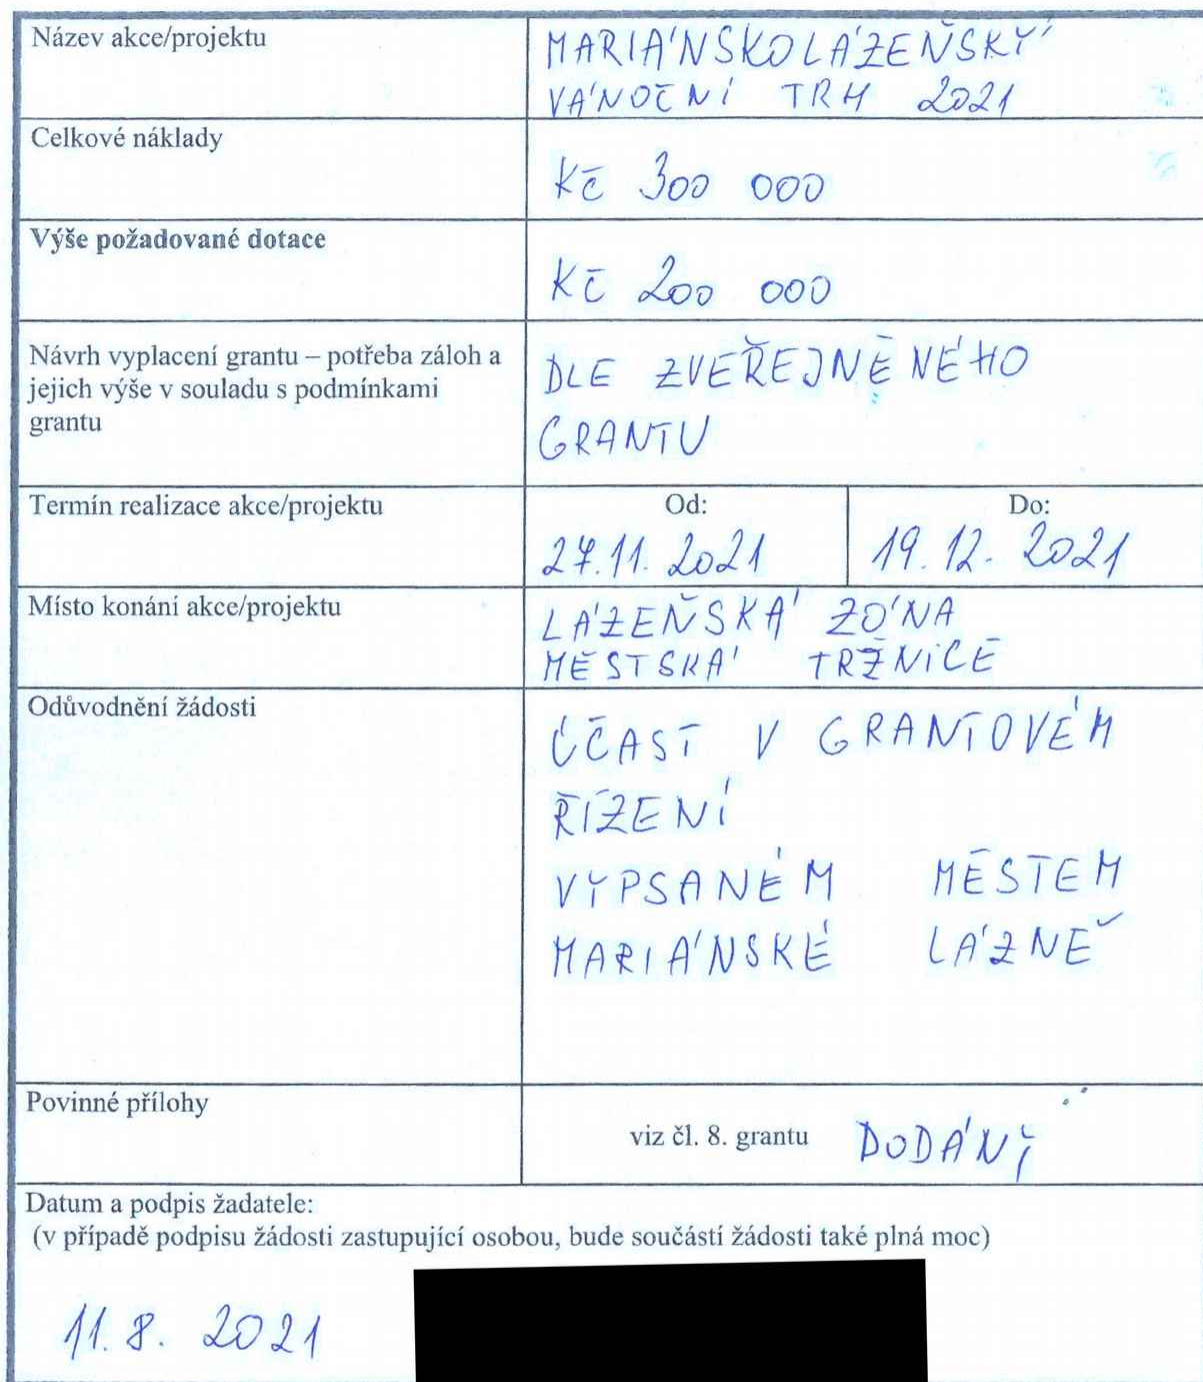 Název akce/projektu
MARIÁNSKOLÁZEŇSKÝ
VÁNOČNÍ TRH 2021
Celkové náklady
Kč 300 000
Výše požadované dotace
Kč 200 000
Návrh vyplacení grantu – potřeba záloh a
jejich výše v souladu s podmínkami
grantu
DLE ZVEŘEJNĚNÉHO
GRANTU
Termín realizace akce/projektu
Od:
27.11.2021
Do:
19.12.2021
Místo konání akce/projektu
LÁZEŇSKÁ ZÓNA
MĚSTSKÁ TRŽNICE
Odůvodnění žádosti
ÚČAST V GRANTOVÉM
ŘÍZENÍ
VYPSANÉM MĚSTEM
MARIÁNSKÉ LÁZNĚ
Povinné přílohy
viz čl. 8. grantu DODÁNÝ
Datum a podpis žadatele:
(v případě podpisu žádosti zastupující osobou, bude součástí žádosti také plná moc)
11.8. 2021